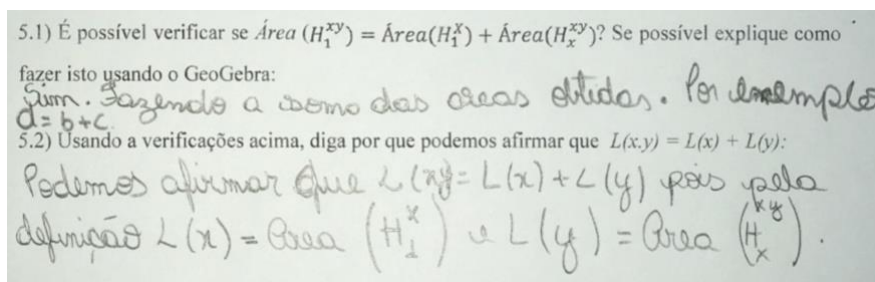 5.1) É possível verificar se Área (H₁ˣʸ) = Área(H₁ˣ) + Área(Hₓˣʸ)? Se possível explique como
fazer isto usando o GeoGebra:
Sim. Fazendo a somo das areas obtidas. Por exemplo
d = b + c.
5.2) Usando a verificações acima, diga por que podemos afirmar que L(x.y) = L(x) + L(y):
Podemos afirmar que L(xy = L(x) + L(y) pois pela
definição L(x) = Area (H₁ˣ) e L(y) = Area (Hₓˣʸ).